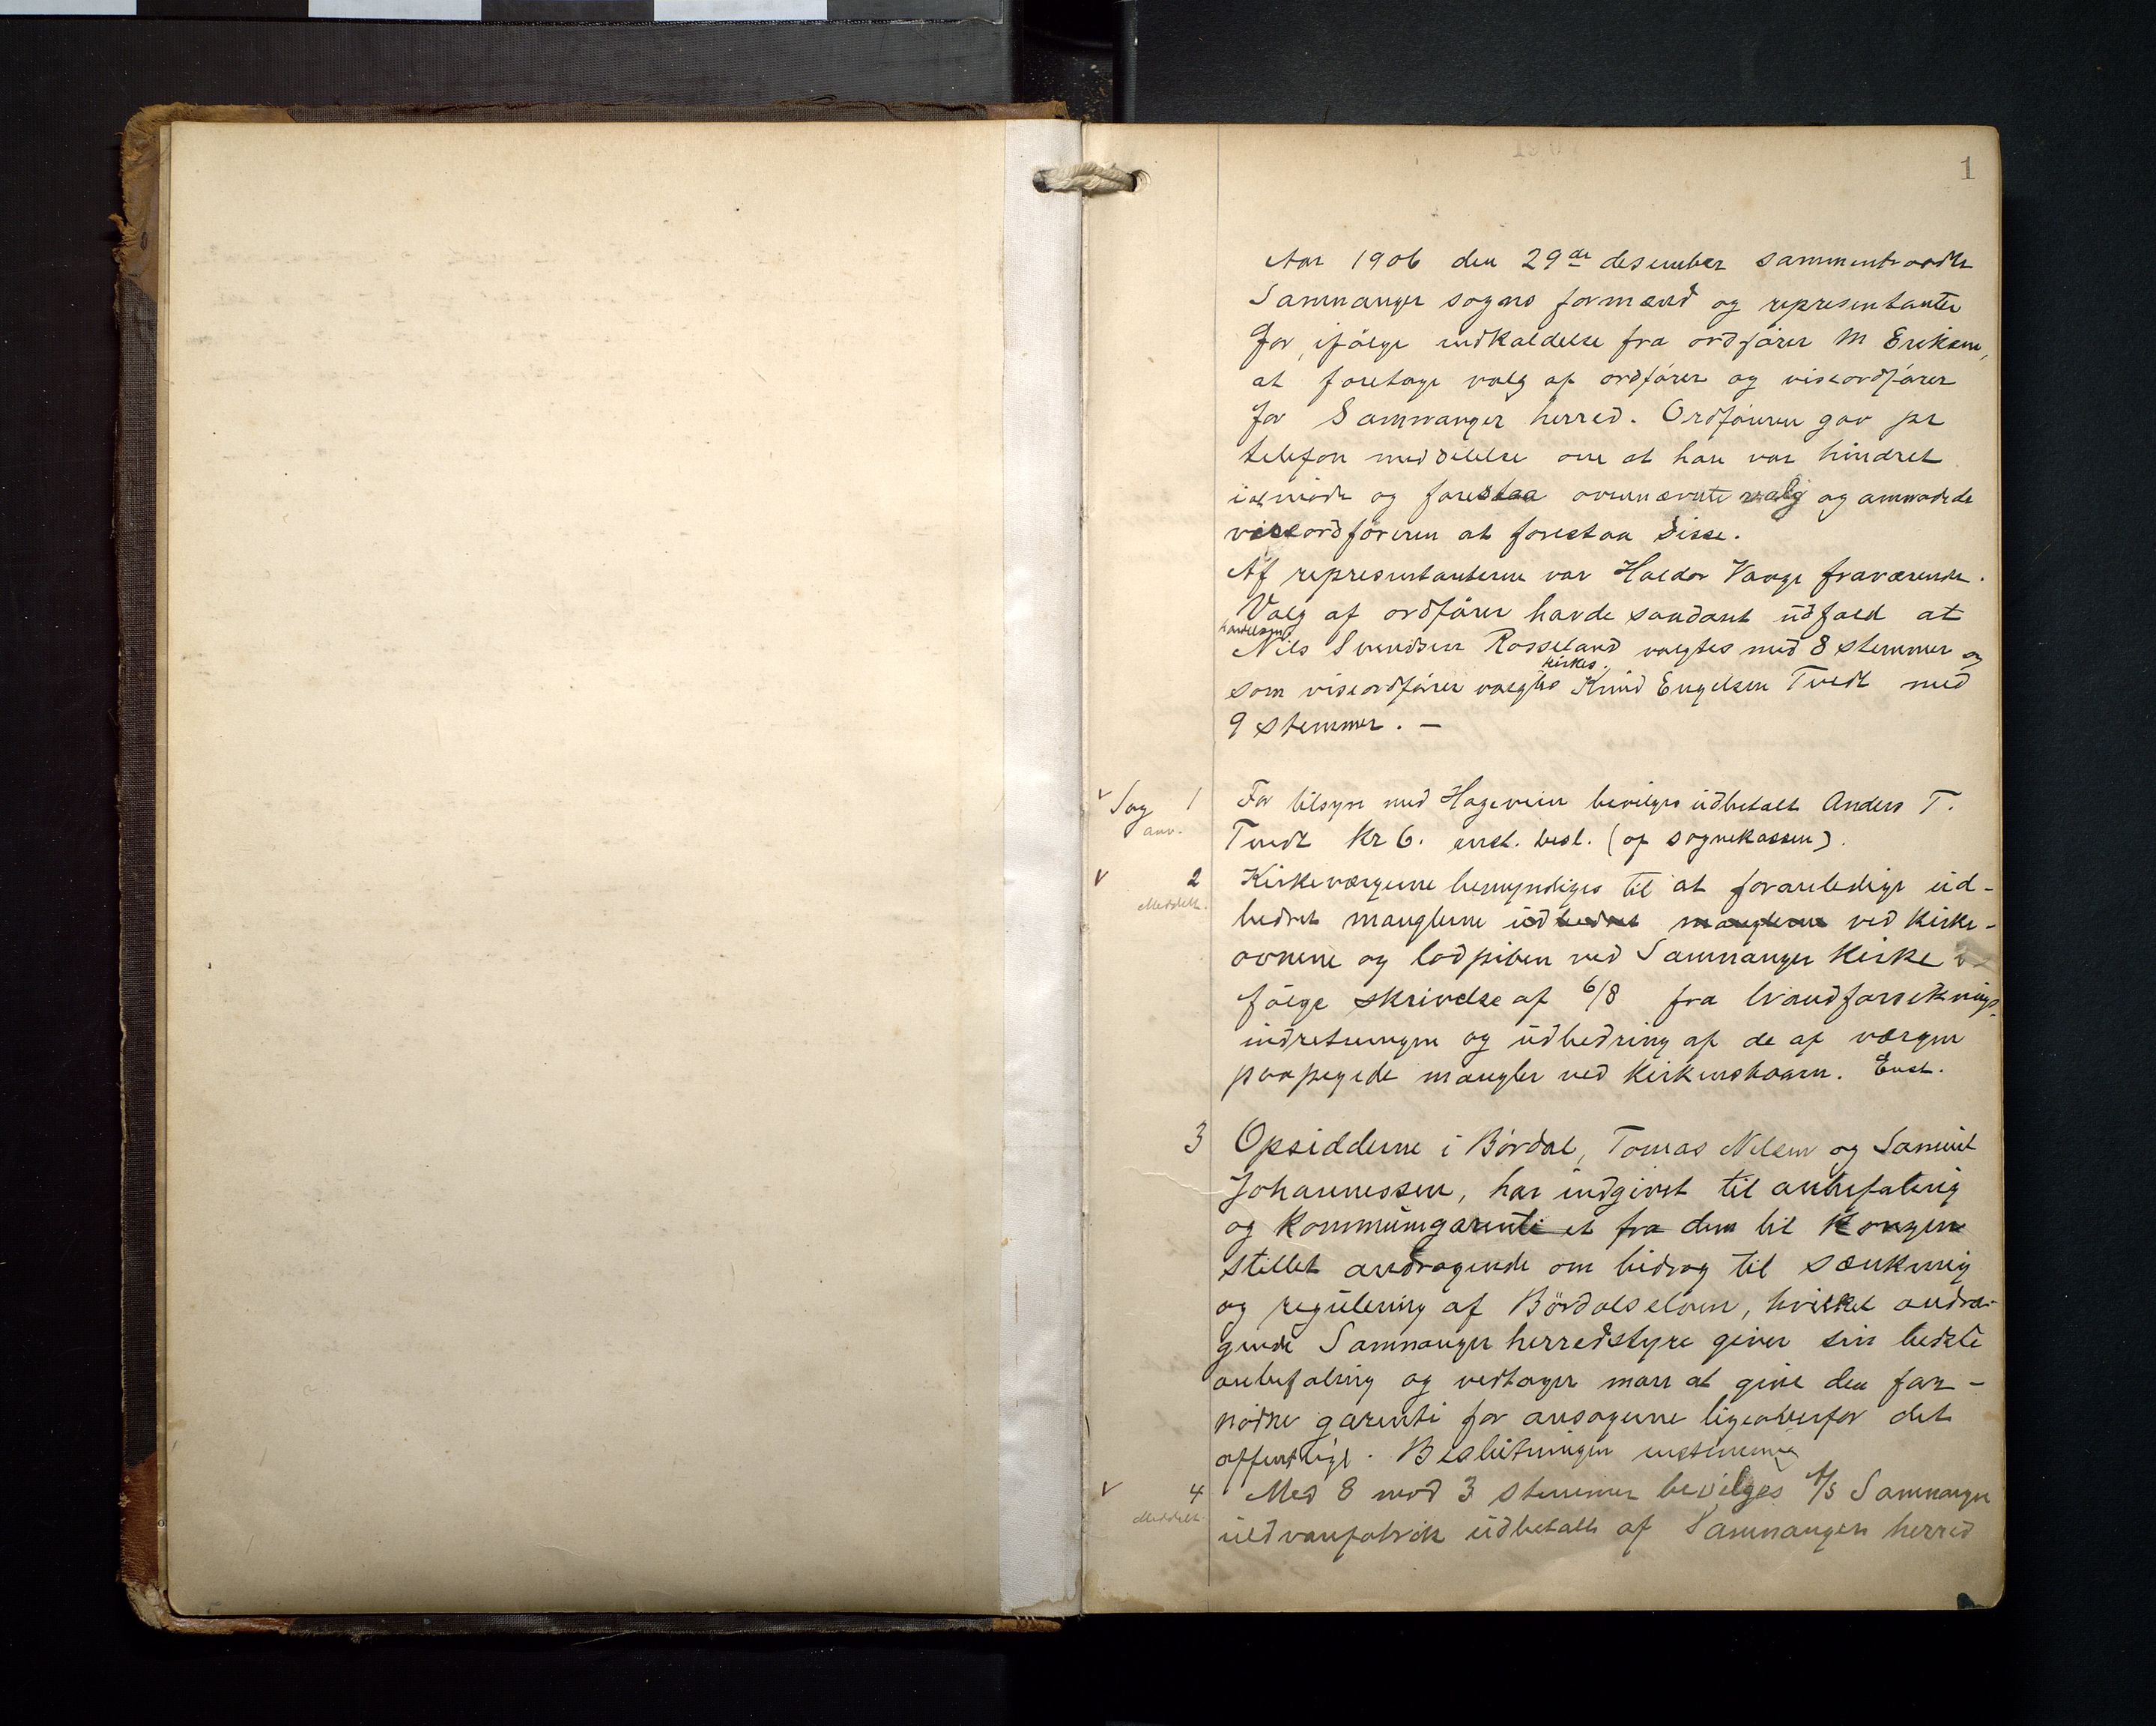 1
Aar 1906 den 29de desember sammentraadte
Samnanger sogns formænd og representanter
for, ifølge indkaldelse fra ordfører M Eriksen,
at foretage valg af ordfører og viseordfører
for Samnanger herred. Ordføreren gav pr
telefon meddelelse om at han var hindret
i at møde og forestaa ovennævnte valg og anmodede
viseordføreren at forestaa disse.
Af representanterne var Haldor Vange fraværende.
Valg af ordfører havde saadant udfald at
handelsm
Nils Svendsen Rosseland valgtes med 8 stemmer og
kirkes.
som viseordfører valgtes Knud Engelsen Tvedt med
9 stemmer. —
Sag 1 For tilsyn med Hageveien bevilges udbetalt Anders T.
anv. Tvedt Kr 6. enst. besl. (af sognekassen).
2 Kirkeværgerne bemyndiges til at foranledige ud-
Meddelt. bedret manglerne udbedret manglerne ved kirke-
ovnene og lodpiben ved Samnanger Kirke
følge skrivelse af 6/8 fra brandforsiknings
indretningen og udbedring af de af værgen
paapegede mangler ved Kirkenskaarn. Enst.
3 Opsidderne i Børdal, Tomas Nilsen og Samuel
Johannessen, har indgivet til anbefaling
og Kommungarenti et fra dem til Kongen
stillet andragende om bidrag til sænkning
og regulering af Børdalselven, hvilket andra-
gende Samnanger herredstyre giver sin bedste
anbefaling og vedtager man at give den for-
nødne garenti for ansøgerne ligeoverfor det
offentlige. Beslutningen enstemmig
4 Med 8 mod 3 stemmer bevilges A/S Samnanger
Meddelt. uldvarefabrik udbetalt af Samnanger herred